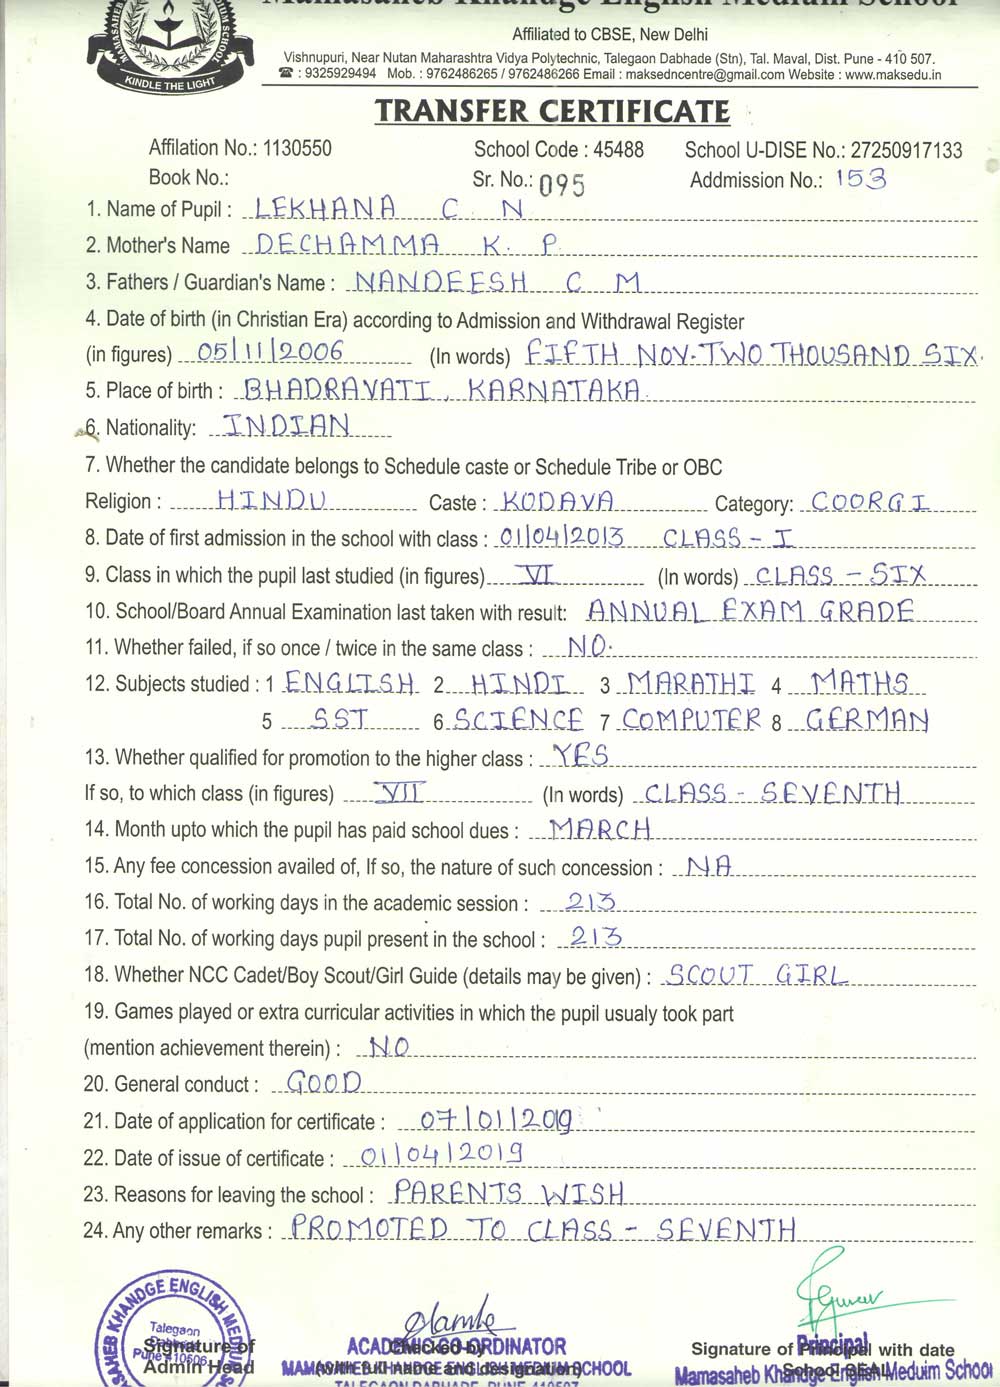 Mamasaheb Khandge English Medium School
Affiliated to CBSE, New Delhi
Vishnupuri, Near Nutan Maharashtra Vidya Polytechnic, Talegaon Dabhade (Stn), Tal. Maval, Dist. Pune - 410 507.
☎ : 9325929494 Mob. : 9762486265 / 9762486266 Email : maksedncentre@gmail.com Website : www.maksedu.in
KINDLE THE LIGHT
TRANSFER CERTIFICATE
Affilation No.: 1130550 School Code : 45488 School U-DISE No.: 27250917133
Book No.: Sr. No.: 095 Addmission No.: 153
1. Name of Pupil : LEKHANA C N
2. Mother's Name DECHAMMA K. P.
3. Fathers / Guardian's Name : NANDEESH C M
4. Date of birth (in Christian Era) according to Admission and Withdrawal Register
(in figures) 05/11/2006 (In words) FIFTH NOV. TWO THOUSAND SIX.
5. Place of birth : BHADRAVATI, KARNATAKA.
6. Nationality: INDIAN
7. Whether the candidate belongs to Schedule caste or Schedule Tribe or OBC
Religion : HINDU Caste : KODAVA Category: COORGI
8. Date of first admission in the school with class : 01/04/2013 CLASS - I
9. Class in which the pupil last studied (in figures) VI (In words) CLASS - SIX
10. School/Board Annual Examination last taken with result: ANNUAL EXAM GRADE
11. Whether failed, if so once / twice in the same class : NO.
12. Subjects studied : 1 ENGLISH 2 HINDI 3 MARATHI 4 MATHS
5 SST 6 SCIENCE 7 COMPUTER 8 GERMAN
13. Whether qualified for promotion to the higher class : YES
If so, to which class (in figures) VII (In words) CLASS - SEVENTH
14. Month upto which the pupil has paid school dues : MARCH
15. Any fee concession availed of, If so, the nature of such concession : NA
16. Total No. of working days in the academic session : 213
17. Total No. of working days pupil present in the school : 213
18. Whether NCC Cadet/Boy Scout/Girl Guide (details may be given) : SCOUT GIRL
19. Games played or extra curricular activities in which the pupil usualy took part
(mention achievement therein) : NO
20. General conduct : GOOD
21. Date of application for certificate : 07/01/2019
22. Date of issue of certificate : 01/04/2019
23. Reasons for leaving the school : PARENTS WISH
24. Any other remarks : PROMOTED TO CLASS - SEVENTH
Talegaon
Signature of ACADEMIC CO-ORDINATOR Signature of Principal with date
Admin Head MAMASAHEB KHANDGE ENGLISH MEDIUM SCHOOL Mamasaheb Khandge English Meduim School
TALEGAON DABHADE PUNE 410507